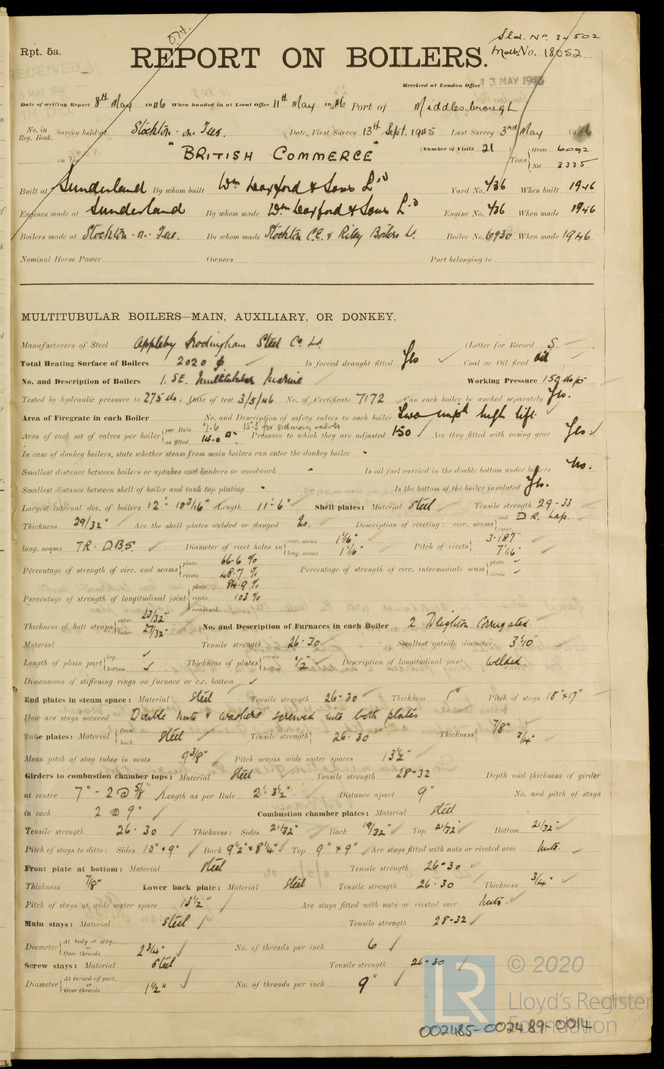 Rpt. 5a.
Sld. No. 3502
REPORT ON BOILERS.
No. 18052
Received at London Office 13 MAY 1946
Date of writing Report 8th May 1946 When handed in at Local Office 11th May 1946 Port of Middlesbrough
No. in Reg. Book. Survey held at Stockton-on-Tees. Date, First Survey 13th Sept. 1945 Last Survey 3rd May 1946
on the "BRITISH COMMERCE" (Number of Visits 21) Tons Gross 6092 Net 3335
Built at Sunderland By whom built Wm Doxford & Sons Ld Yard No. 736 When built 1946
Engines made at Sunderland By whom made Wm Doxford & Sons Ld Engine No. 736 When made 1946
Boilers made at Stockton-on-Tees. By whom made Stockton C.E. & Riley Boilers Ld. Boiler No. 6930 When made 1946
Nominal Horse Power Owners Port belonging to
MULTITUBULAR BOILERS—MAIN, AUXILIARY, OR DONKEY.
Manufacturers of Steel Appleby Frodingham Steel Co. Ld. (Letter for Record S.)
Total Heating Surface of Boilers 2020 Is forced draught fitted Yes Coal or Oil fired oil
No. and Description of Boilers 1. S.E. Multitubular Marine Working Pressure 150 lbs
Tested by hydraulic pressure to 275 lbs. Date of test 3/5/46 No. of Certificate 7172 Can each boiler be worked separately Yes.
Area of Firegrate in each Boiler No. and Description of safety valves to each boiler Two high lift
Area of each set of valves per boiler per Rule as fitted 14.0 Pressure to which they are adjusted 150 Are they fitted with easing gear Yes
In case of donkey boilers, state whether steam from main boilers can enter the donkey boiler -
Smallest distance between boilers or uptakes and bunkers or woodwork - Is oil fuel carried in the double bottom under boilers No.
Smallest distance between shell of boiler and tank top plating - Is the bottom of the boiler insulated Yes.
Largest internal dia. of boilers 12'- 10 3/16" Length 11'-6" Shell plates: Material Steel Tensile strength 29-33
Thickness 29/32" Are the shell plates welded or flanged No. Description of riveting: circ. seams end D.R. Lap. inter.
long. seams T.R. D.B.S. Diameter of rivet holes in circ. seams 1 1/16" long. seams 1 1/16" Pitch of rivets 3.187" 7 1/16"
Percentage of strength of circ. end seams plate 66.6 % rivets 48.7 % Percentage of strength of circ. intermediate seam plate rivets
Percentage of strength of longitudinal joint plate 84.9 % rivets 103 % combined
Thickness of butt straps outer 23/32" inner 27/32" No. and Description of Furnaces in each Boiler 2 Deighton Corrugated
Material Tensile strength 26-30 Smallest outside diameter 3'-10"
Length of plain part top bottom Thickness of plates crown bottom 1/2" Description of longitudinal joint welded
Dimensions of stiffening rings on furnace or c.c. bottom
End plates in steam space: Material Steel Tensile strength 26-30 Thickness 1" Pitch of stays 18"x17"
How are stays secured Double nuts & washers screwed into both plates
Tube plates: Material front back Steel Tensile strength 26-30 Thickness 7/8" 3/4"
Mean pitch of stay tubes in nests 9 3/8" Pitch across wide water spaces 13 1/2"
Girders to combustion chamber tops: Material Steel Tensile strength 28-32 Depth and thickness of girder
at centre 7" - 2 @ 5/8" Length as per Rule 2'-3 1/2" Distance apart 9" No. and pitch of stays
in each 2 @ 9" Combustion chamber plates: Material Steel
Tensile strength 26-30 Thickness: Sides 21/32" Back 19/32" Top 21/32" Bottom 21/32"
Pitch of stays to ditto: Sides 10"x9" Back 9 1/2"x8 1/4" Top 9"x9" Are stays fitted with nuts or riveted over Nuts.
Front plate at bottom: Material Steel Tensile strength 26-30
Thickness 7/8" Lower back plate: Material Steel Tensile strength 26-30 Thickness 3/4"
Pitch of stays at wide water space 13 1/2" Are stays fitted with nuts or riveted over Nuts
Main stays: Material Steel Tensile strength 28-32
Diameter At body of stay, or Over threads 2 3/4" No. of threads per inch 6
Screw stays: Material Steel Tensile strength 26-30
Diameter At turned off part, or Over threads 1 1/2" No. of threads per inch 9"
LR © 2020
Lloyd's Register
Foundation
002485-002489-0014